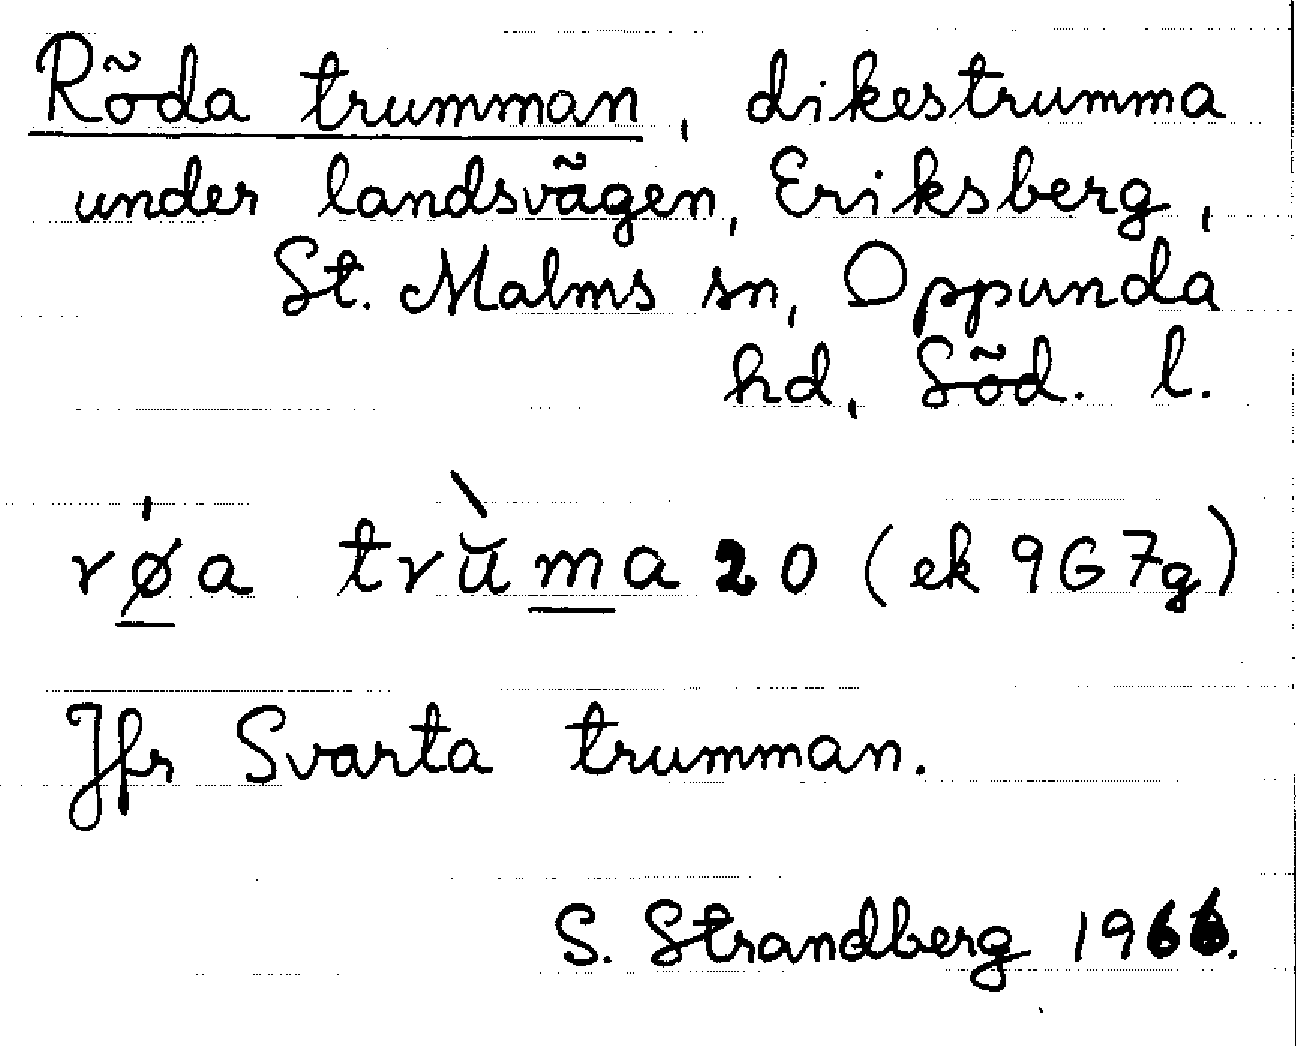 Röda trumman, dikestrumma
under landsvägen, Eriksberg,
St. Malms sn, Oppunda
hd, Söd. l.
rǿ̲a trŭ̀m̲a 20 (ek 9G7g)
Jfr Svarta trumman.
S. Strandberg 1966.